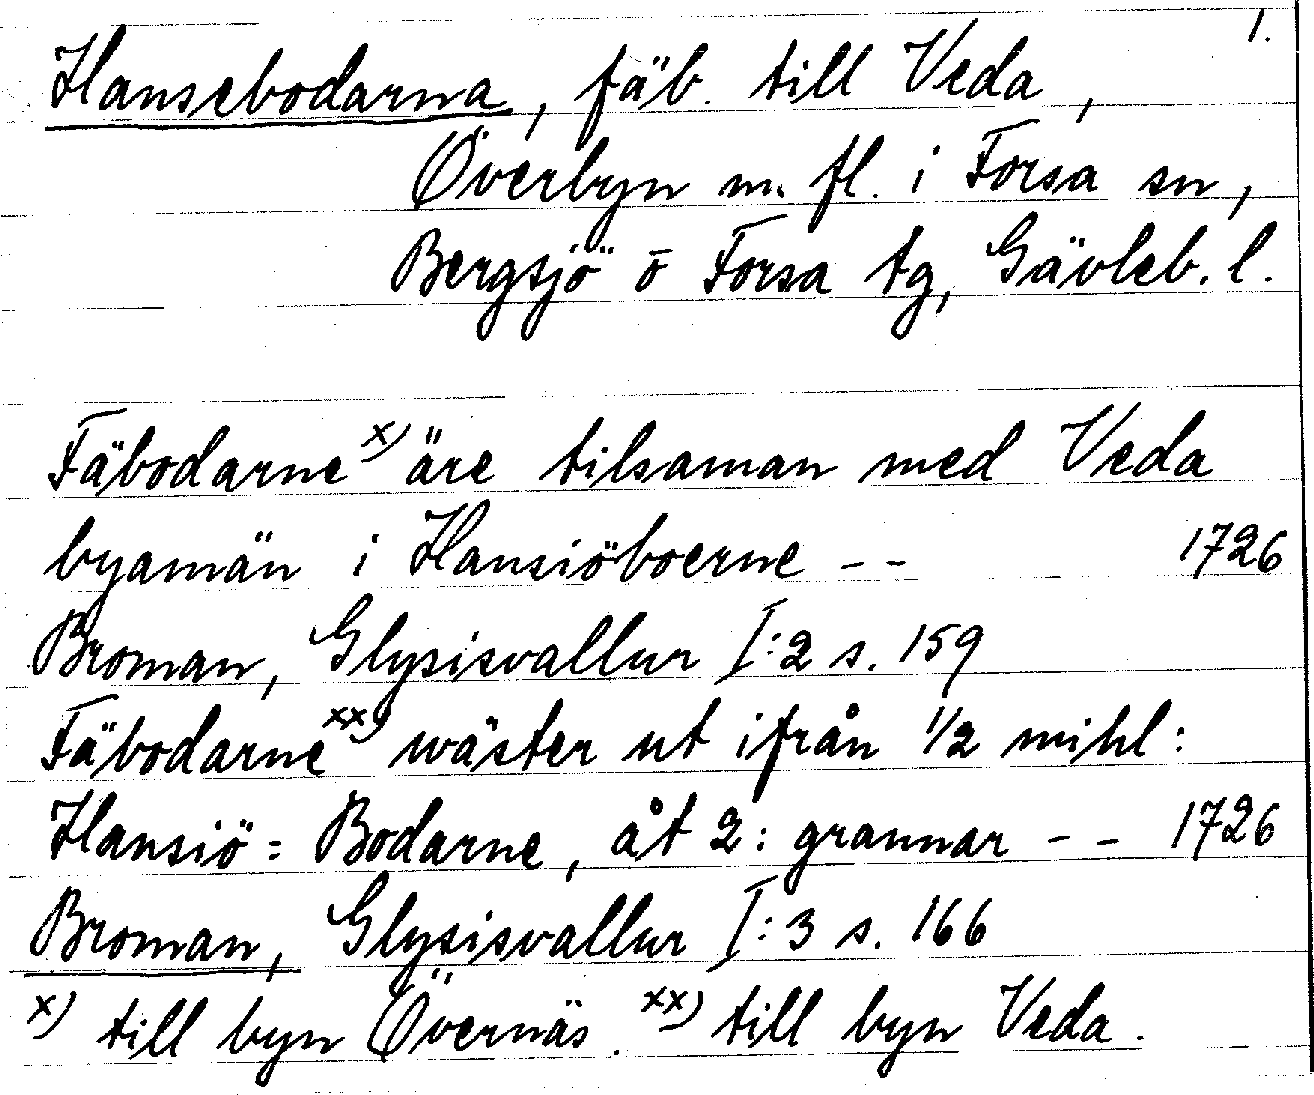 1.
Hansebodarna, fäb. till Veda,
Överbyn m. fl. i Forsa sn,
Bergsjö o Forsa tg, Gävleb. l.
Fäbodarne x) äre tilsaman med Veda
byamän i Hansiöboerne -- 1726
Broman, Glysisvallur I:2 s. 159
Fäbodarne xx) wäster ut ifrån 1/2 mihl:
Hansiö = Bodarne, åt 2: grannar -- 1726
Broman, Glysisvallur I:3 s. 166
x) till byn Övernäs. xx) till byn Veda.